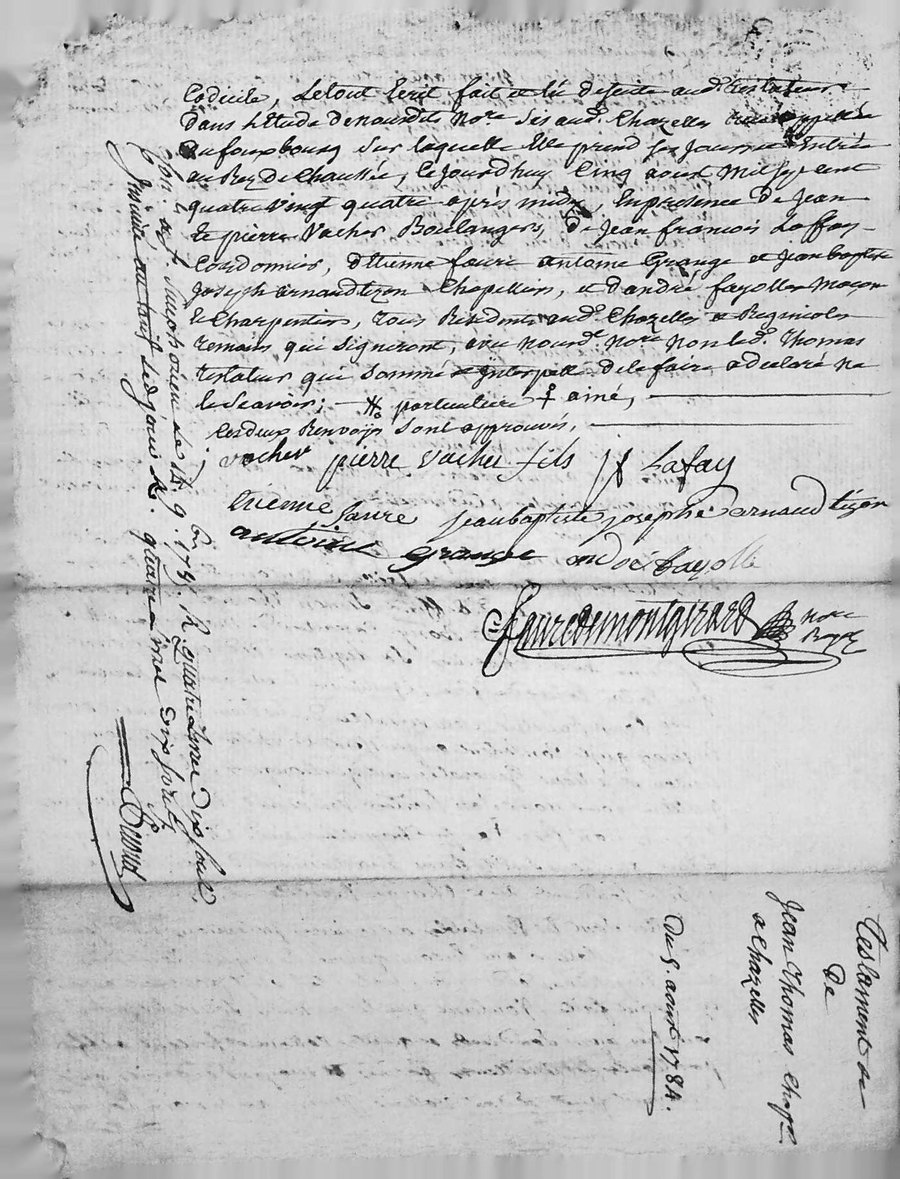 Codicile, Le tout Ecrit fait et lû de suite aud. testateur
dans L'Etude de nousdits No.re sis aud. Chazelles rue appellée
du fouxbourg sur laquelle Elle prend son jour et son Entrée
au Rez de Chaussée, Cejourdhuy Cinq aoust mil sept cent
quatre vingt quatre après midy, En presence de Jean
et pierre Vacher Boulangers, de Jean françois Laffay
Cordonnier, d'Etienne faure antoine Grange et Jean baptiste
Joseph arnaud tizon Chapelliers, et d'andré fayolle Maçon
et Charpentier, tous Residents aud. Chazelles et Regnicoles
temoins qui signeront, avec nousd. No.re Non led. Thomas
testateur qui sommé et Interpellé de le faire a declaré ne
le sçavoir; particuliere ainé,
Ces deux Renvoys sont approuvés,
vacher pierre vacher fils jf Lafay
Etienne faure jeanbaptiste josephe arnaud tizon
antoine grange andré fayolle
Fauredemontgirard No.re Royal
Con. a St. Simphorien Le 14. 9.bre 1784. R. quatre Livres dix sols.
Insinué au tarif Led. jour R. quatre dix sols
Testament de
De
Jean Thomas Chap.er
a Chazelles
Du 5. aoust 1784.